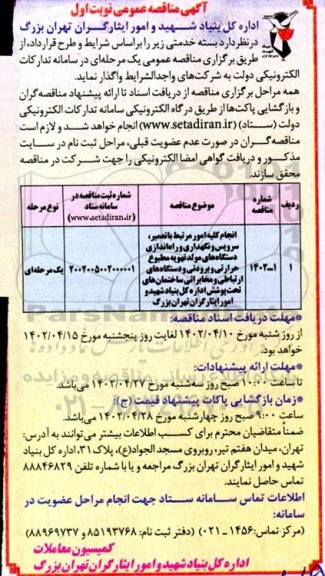 آگهی مناقصه عمومی نوبت اول
اداره کل بنیاد شهید و امور ایثارگران تهران بزرگ
در نظر دارد بسته خدمتی زیر را براساس شرایط و طرح قرارداد، از
طریق برگزاری مناقصه عمومی یک مرحله‌ای در سامانه تدارکات
الکترونیکی دولت به شرکت‌های واجدالشرایط واگذار نماید.
همه مراحل برگزاری مناقصه از دریافت اسناد تا ارائه پیشنهاد مناقصه‌گران
و بازگشایی پاکت‌ها از طریق درگاه الکترونیکی سامانه تدارکات الکترونیکی
دولت (ستاد) (www.setadiran.ir) انجام خواهد شد و لازم است
مناقصه‌گران در صورت عدم عضویت قبلی، مراحل ثبت نام در سایت
مذکور و دریافت گواهی امضا الکترونیکی را جهت شرکت در مناقصه
محقق سازند.
ردیف | شماره مناقصه | موضوع مناقصه | شماره ثبت مناقصه در سامانه ستاد (www.setadiran.ir) | نوع مرحله
۱ | ۱ـ۱۴۰۲ | انجام کلیه امور مرتبط با تعمیر، سرویس و نگهداری و راه‌اندازی دستگاه‌های مولد تهویه مطبوع حرارتی و برودتی و دستگاه‌های ارتباطی و مخابراتی ساختمان‌های تحت پوشش اداره کل بنیاد شهید و امور ایثارگران تهران بزرگ | ۲۰۰۲۰۰۵۰۰۲۰۰۰۰۰۱ | یک مرحله‌ای
*مهلت دریافت اسناد مناقصه:
از روز شنبه مورخ ۱۴۰۲/۰۴/۱۰ لغایت روز پنجشنبه مورخ ۱۴۰۲/۰۴/۱۵
خواهد بود.
*مهلت ارائه پیشنهادات:
تا ساعت ۱۰:۰۰ صبح روز سه‌شنبه مورخ ۱۴۰۲/۰۴/۲۷ می‌باشد.
*زمان بازگشایی پاکات پیشنهاد قیمت (ج):
ساعت ۹:۰۰ صبح روز چهارشنبه مورخ ۱۴۰۲/۰۴/۲۸ می‌باشد.
ضمناً متقاضیان محترم برای کسب اطلاعات بیشتر می‌توانند به آدرس:
تهران، میدان هفتم تیر، روبروی مسجد الجواد(ع)، پلاک ۳۱، اداره کل بنیاد
شهید و امور ایثارگران تهران بزرگ مراجعه و یا با شماره تلفن ۸۸۸۴۶۸۲۹
تماس حاصل نمایند.
اطلاعات تماس سامانه ستاد جهت انجام مراحل عضویت در
سامانه:
(مرکز تماس: ۱۴۵۶ـ۰۲۱) (دفتر ثبت نام: ۸۵۱۹۳۷۶۸ و ۸۸۹۶۹۷۳۷)
کمیسیون معاملات
اداره کل بنیاد شهید و امور ایثارگران تهران بزرگ